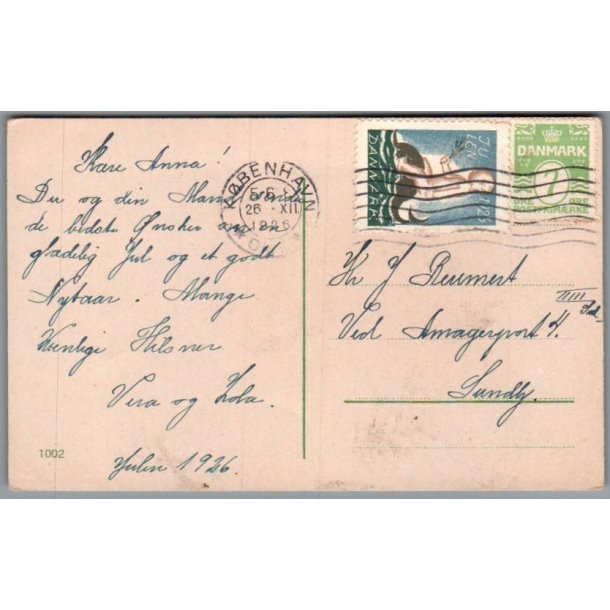 Kære Anna!
Du og din Mand
de bedste Ønsker om en
glædelig Jul og et godt
Nytaar. Mange
Kærlige Hilsner
Vera og Lola.
Julen 1926.
1002
KØBENHAVN
26 · XII
1926
JULEN
DANMARK
DANMARK
7
ØRE ØRE
POSTFRIMÆRKE
Hr J Reumert
Ved Amagerport 4.
Sundby.